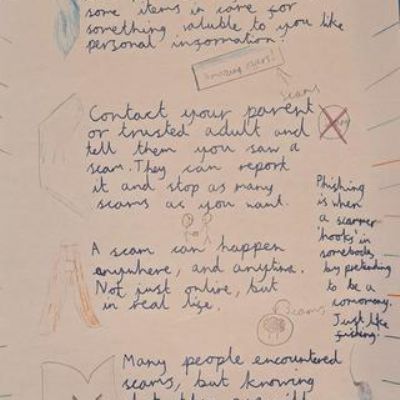 some items in core for
something valuble to you like
personal information!
amazing cars!
scams
Contact your parent
or trusted adult and
tell them you saw a
scam. They can report
it and stop as many
scams as you want.
Phishing
is when
a scammer
'hooks' in
somebody
by pretending
to be a
company.
Just like
fishing.
A scam can happen
anywhere, and anytime.
Not just online, but
in real life.
Scams
Many people encountered
scams, but knowing